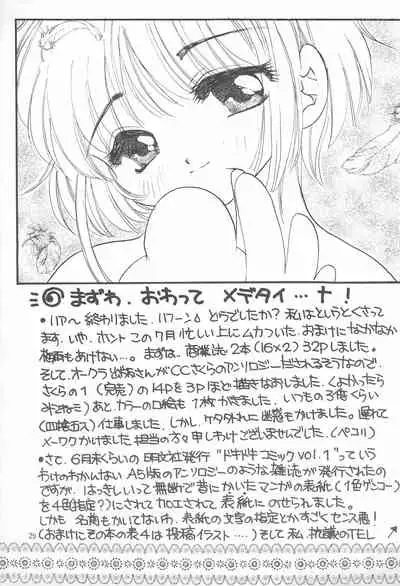 まずわ、おわって メデタイ…ナ!
•ハア〜 終わりました。ハフーン♪ どうでしたか? 私はどしらとくさって
ます。いや、ホント この7月 忙しい上に ムカついた。おまけになかなか
梅雨もあけない…。まずは、商業誌2本(16×2)32Pしました。
そして、オークラ出版さんがCCさくらのアンソロジーだされるそうなので
さくらの1(完売)の14Pを3Pほど描きなおしました。(よかったら
みてねミ)あと、カラーの口絵も1枚かきました。いつもの3倍くらい
仕事しました。しかし、ケタタれに迷惑もかけました。遅れて
メーワクかけました担当の方々 申しわけございませんでした。(ペコリ)
•さて、6月末くらいの 明文社発行 "ドキドキコミック vol.1"ってい
うわけのわかんない A5版のアンソロジーのような雑誌が発行されたの
ですが、はっきしいって無断で昔にかいたマンガの表紙(1色ゲンコー)
を4色指定?)にされて加工されて 表紙に のせられました。
しかも 名前もかいてないわ、表紙の文字の指定とかすごくセンス悪!
(おまけにその本の表4は投稿イラスト‥‥) そして 私、抗議のTEL
29